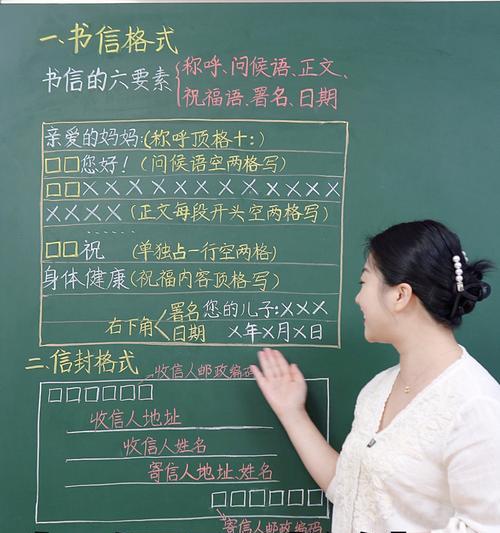 一、书信格式
书信的六要素{称呼、问候语、正文、
祝福语、署名、日期
亲爱的妈妈:(称呼顶格十:)
□□您好!(问候语空两格写)
□□×××××××××××××
××××(正文每段开头空两格写)
……
□□祝 (单独占一行空两格)
身体健康(祝福内容顶格写)
右下角<署名 您的儿子:×××
日期 ×年×月×日
二、信封格式
收信人邮政编码
□□□□□□
收信人地址
收信人姓名
寄信人地址、姓名
□□□□□□
寄信人邮政编码